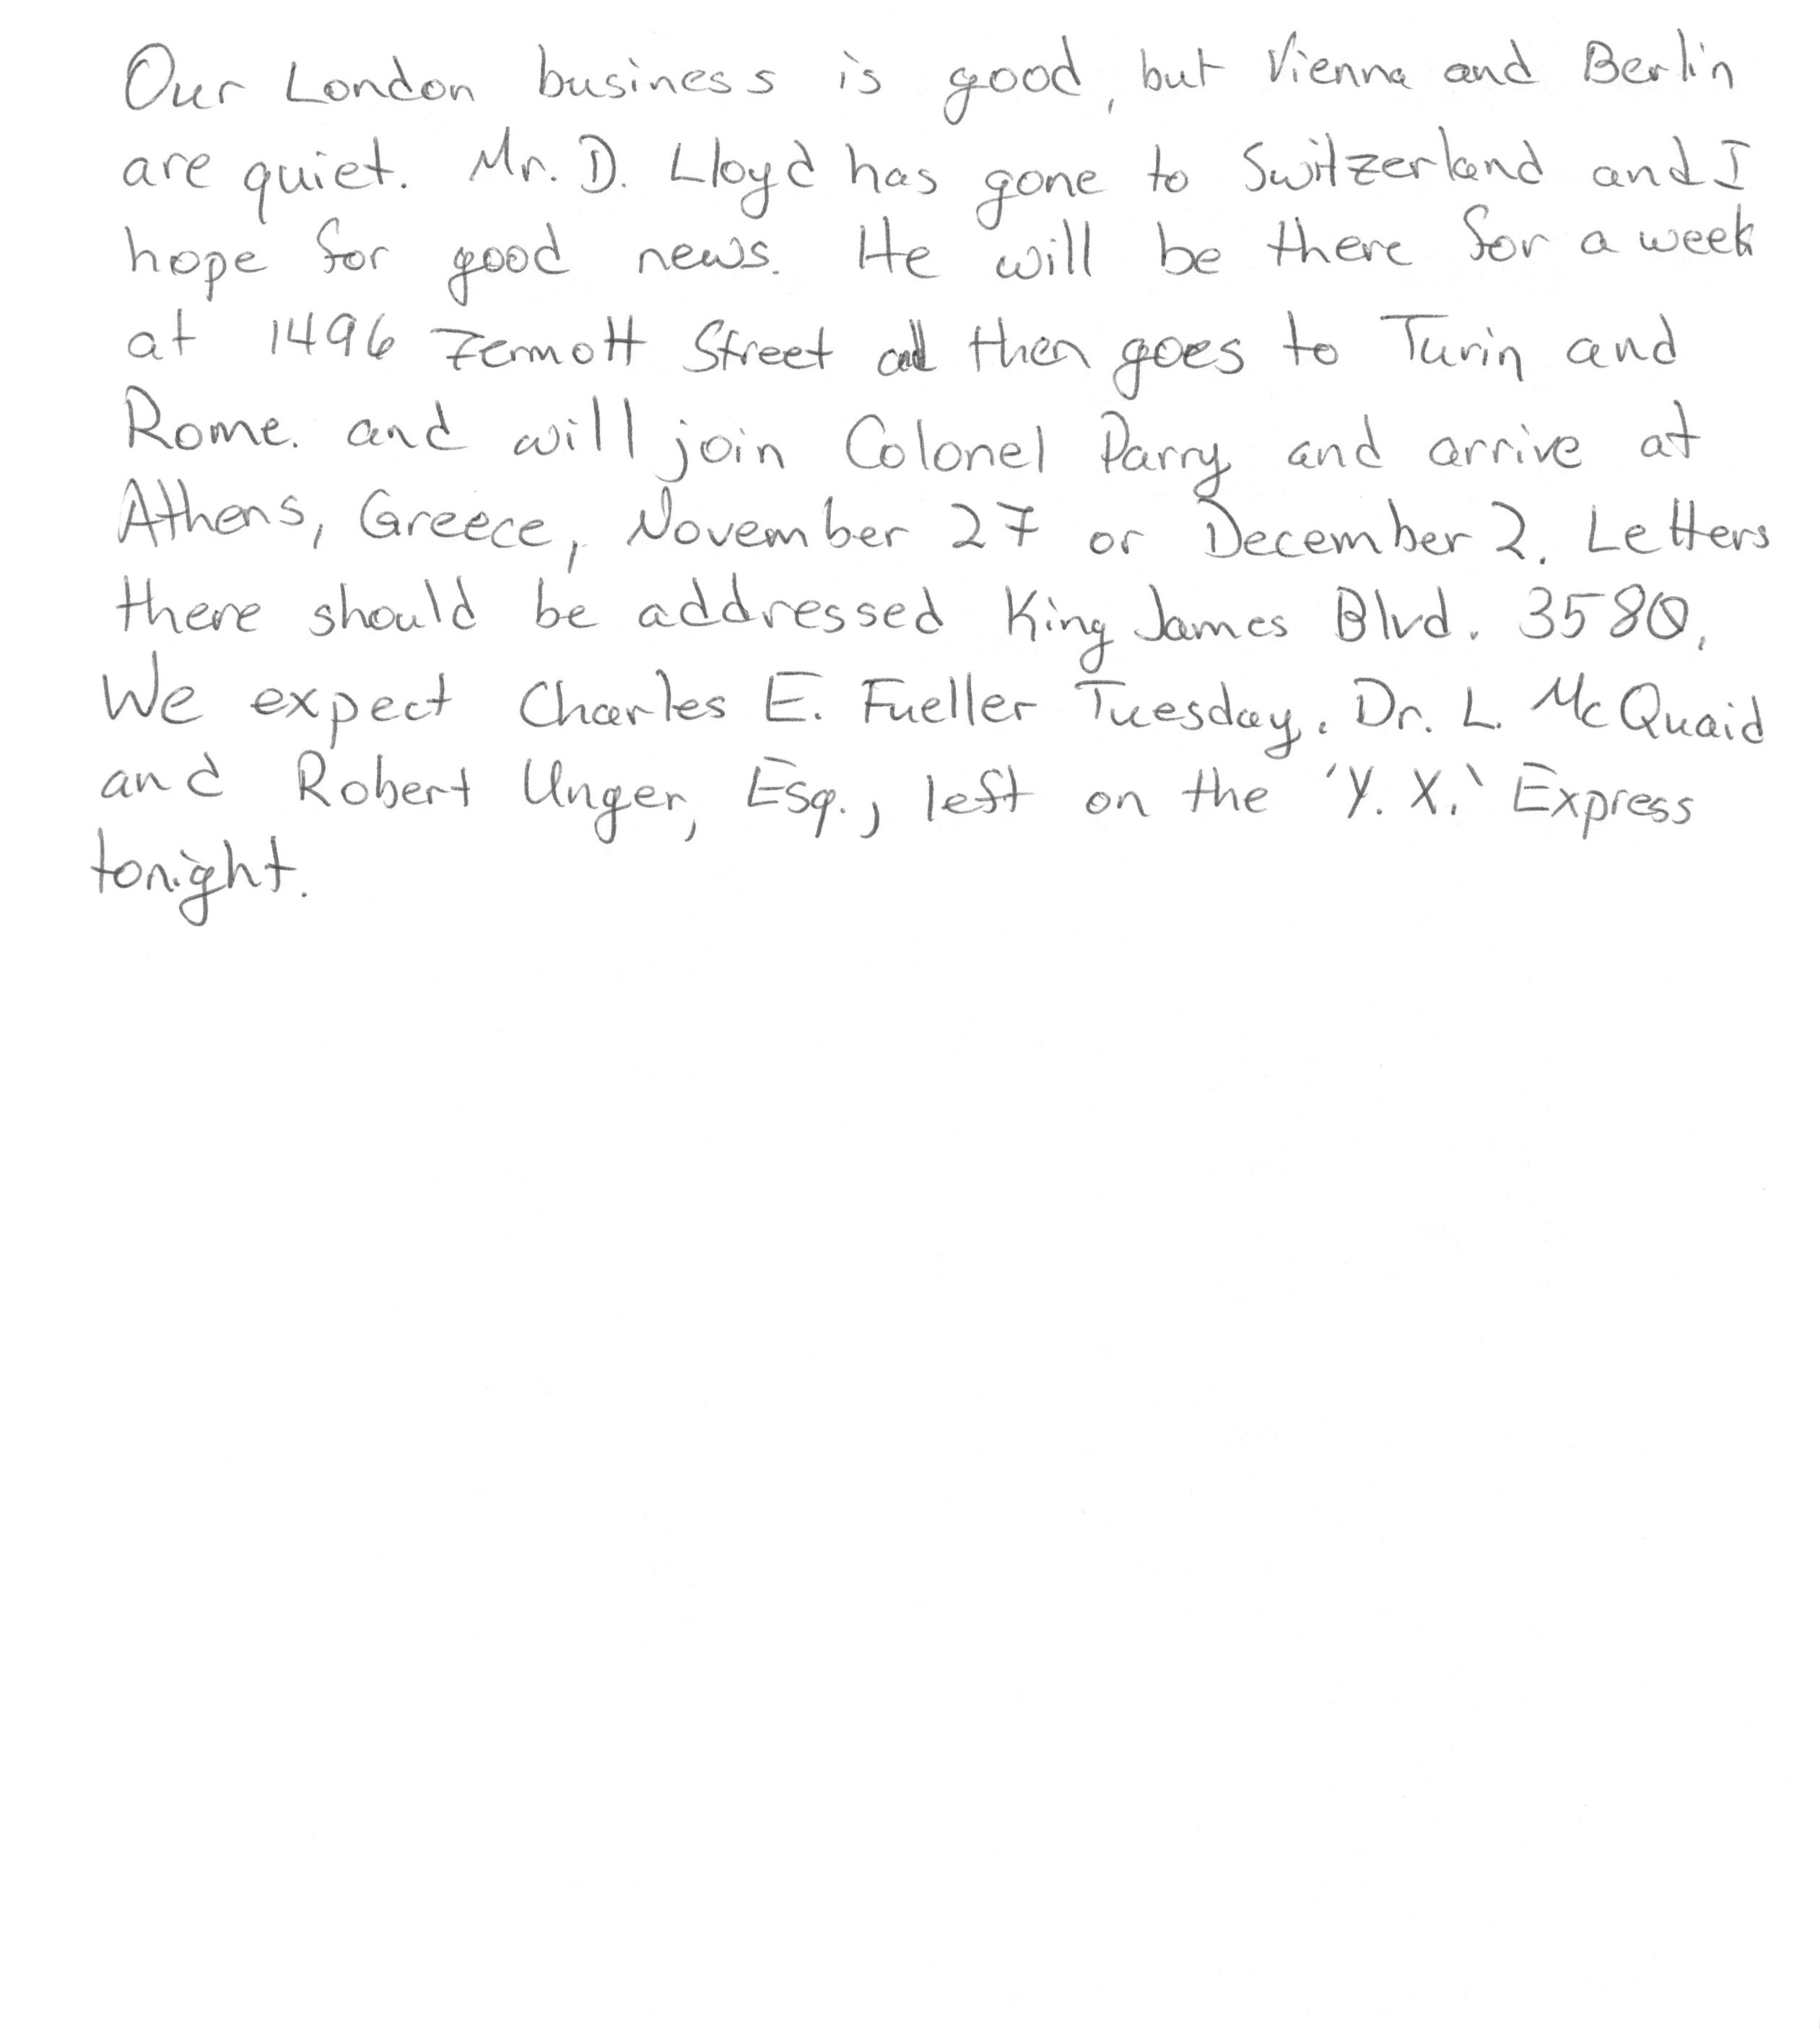 Our London business is good, but Vienna and Berlin
are quiet. Mr. D. Lloyd has gone to Switzerland and I
hope for good news. He will be there for a week
at 1496 Zermott Street and then goes to Turin and
Rome. and will join Colonel Parry and arrive at
Athens, Greece, November 27 or December 2. Letters
there should be addressed King James Blvd. 3580.
We expect Charles E. Fueller Tuesday. Dr. L. McQuaid
and Robert Unger, Esq., left on the 'Y. X.' Express
tonight.